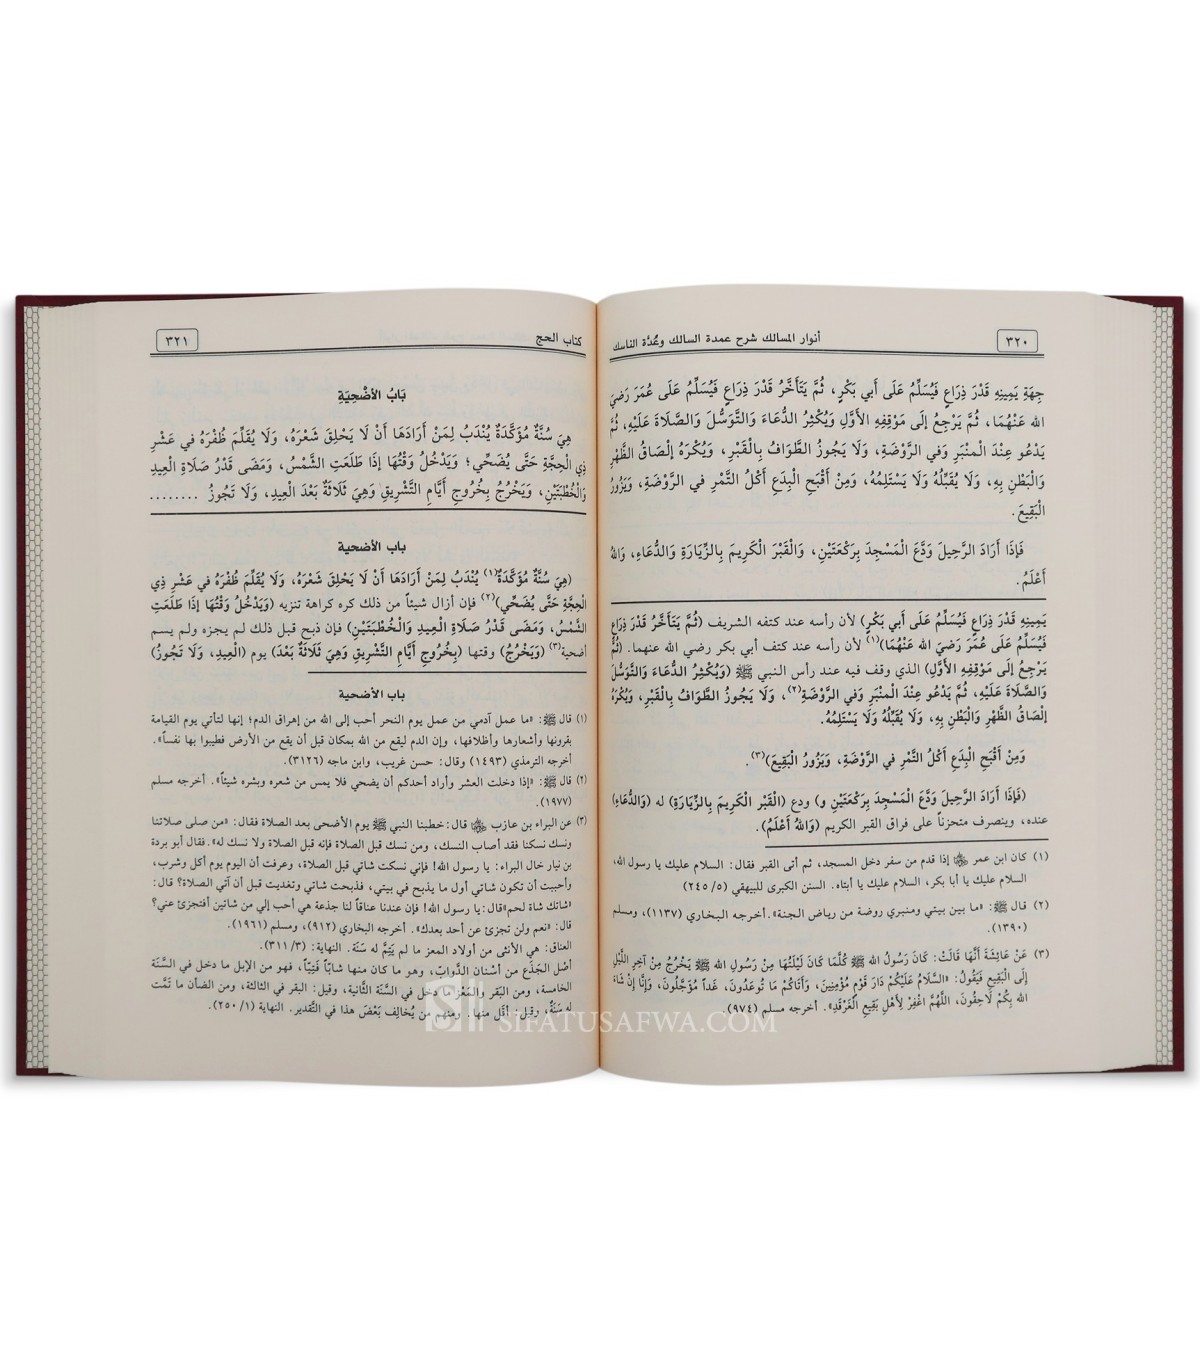 ٣٢٠
أنوار المسالك شرح عمدة السالك وعُدَّة الناسك
جِهَةِ يَمِينِهِ قَدْرَ ذِرَاعٍ فَيُسَلِّمُ عَلَى أَبِي بَكْرٍ، ثُمَّ يَتَأَخَّرُ قَدْرَ ذِرَاعٍ فَيُسَلِّمُ عَلَى عُمَرَ رَضِيَ
الله عَنْهُمَا، ثُمَّ يَرْجِعُ إِلَى مَوْقِفِهِ الأَوَّلِ وَيُكْثِرُ الدُّعَاءَ وَالتَّوَسُّلَ وَالصَّلَاةَ عَلَيْهِ، ثُمَّ
يَدْعُو عِنْدَ الْمِنْبَرِ وَفي الرَّوْضَةِ، وَلَا يَجُوزُ الطَّوَافُ بِالْقَبْرِ، وَيُكْرَهُ إِلْصَاقُ الظَّهْرِ
وَالْبَطْنِ بِهِ، وَلَا يُقَبِّلُهُ وَلَا يَسْتَلِمُهُ، وَمِنْ أَقْبَحِ الْبِدَعِ أَكْلُ التَّمْرِ في الرَّوْضَةِ، وَيَزُورُ
الْبَقِيعَ.
فَإِذَا أَرَادَ الرَّحِيلَ وَدَّعَ الْمَسْجِدَ بِرَكْعَتَيْنِ، وَالْقَبْرَ الْكَرِيمَ بِالزِّيَارَةِ وَالدُّعَاءِ، وَاللهُ
أَعْلَمُ.
يَمِينِهِ قَدْرَ ذِرَاعٍ فَيُسَلِّمُ عَلَى أَبِي بَكْرٍ) لأن رأسه عند كتفه الشريف (ثُمَّ يَتَأَخَّرُ قَدْرَ ذِرَاعٍ
فَيُسَلِّمُ عَلَى عُمَرَ رَضِيَ الله عَنْهُمَا)(١) لأن رأسه عند كتف أبي بكر رضي الله عنهما. (ثُمَّ
يَرْجِعُ إِلَى مَوْقِفِهِ الأَوَّلِ) الذي وقف فيه عند رأس النبي ﷺ (وَيُكْثِرُ الدُّعَاءَ وَالتَّوَسُّلَ
وَالصَّلَاةَ عَلَيْهِ، ثُمَّ يَدْعُو عِنْدَ الْمِنْبَرِ وَفي الرَّوْضَةِ(٢)، وَلَا يَجُوزُ الطَّوَافُ بِالْقَبْرِ، وَيُكْرَهُ
إِلْصَاقُ الظَّهْرِ وَالْبَطْنِ بِهِ، وَلَا يُقَبِّلُهُ وَلَا يَسْتَلِمُهُ.
وَمِنْ أَقْبَحِ الْبِدَعِ أَكْلُ التَّمْرِ في الرَّوْضَةِ، وَيَزُورُ الْبَقِيعَ)(٣).
(فَإِذَا أَرَادَ الرَّحِيلَ وَدَّعَ الْمَسْجِدَ بِرَكْعَتَيْنِ و) ودع (الْقَبْر الْكَرِيم بِالزِّيَارَةِ) له (وَالدُّعَاءِ)
عنده، وينصرف متحزناً على فراق القبر الكريم (وَاللهُ أَعْلَمُ).
(١) كان ابن عمر ﵁ إذا قدم من سفر دخل المسجد، ثم أتى القبر فقال: السلام عليك يا رسول الله،
السلام عليك يا أبا بكر، السلام عليك يا أبتاه. السنن الكبرى للبيهقي (٢٤٥/٥)
(٢) قال ﷺ: «ما بين بيتي ومنبري روضة من رياض الجنة».أخرجه البخاري (١١٣٧)، ومسلم
(١٣٩٠).
(٣) عَنْ عَائِشَةَ أَنَّهَا قَالَتْ: كَانَ رَسُولُ الله ﷺ كُلَّمَا كَانَ لَيْلَتُهَا مِنْ رَسُولِ الله ﷺ يَخْرُجُ مِنْ آخِرِ اللَّيْلِ
إِلَى الْبَقِيعِ فَيَقُولُ: «السَّلَامُ عَلَيْكُمْ دَارَ قَوْمٍ مُؤْمِنِينَ، وَأَتَاكُمْ مَا تُوعَدُونَ، غَداً مُؤَجَّلُونَ، وَإِنَّا إِنْ شَاءَ
الله بِكُمْ لَاحِقُونَ، اللَّهُمَّ اغْفِرْ لِأَهْلِ بَقِيعِ الْغَرْقَدِ». أخرجه مسلم (٩٧٤)
كتاب الحج
٣٢١
بَابُ الأُضْحِيَةِ
هِيَ سُنَّةٌ مُؤَكَّدَةٌ يُنْدَبُ لِمَنْ أَرَادَهَا أَنْ لَا يَحْلِقَ شَعْرَهُ، وَلَا يُقَلِّمَ ظُفْرَهُ في عَشْرِ
ذِي الْحِجَّةِ حَتَّى يُضَحِّي؛ وَيَدْخُلُ وَقْتُهَا إِذَا طَلَعَتِ الشَّمْسُ، وَمَضَى قَدْرُ صَلَاةِ الْعِيدِ
وَالْخُطْبَتَيْنِ، وَيَخْرُجُ بِخُرُوجِ أَيَّامِ التَّشْرِيقِ وَهِيَ ثَلَاثَةٌ بَعْدَ الْعِيدِ، وَلَا تَجُوزُ ........
باب الأضحية
(هِيَ سُنَّةٌ مُؤَكَّدَةٌ(١) يُنْدَبُ لِمَنْ أَرَادَهَا أَنْ لَا يَحْلِقَ شَعْرَهُ، وَلَا يُقَلِّمَ ظُفْرَهُ في عَشْرِ ذِي
الْحِجَّةِ حَتَّى يُضَحِّي)(٢) فإن أزال شيئاً من ذلك كره كراهة تنزيه (وَيَدْخُلُ وَقْتُهَا إِذَا طَلَعَتِ
الشَّمْسُ، وَمَضَى قَدْرُ صَلَاةِ الْعِيدِ وَالْخُطْبَتَيْنِ) فإن ذبح قبل ذلك لم يجزه ولم يسم
أضحية(٣) (وَيَخْرُجُ) وقتها (بِخُرُوجِ أَيَّامِ التَّشْرِيقِ وَهِيَ ثَلَاثَةٌ بَعْدَ) يوم (الْعِيدِ، وَلَا تَجُوزُ)
باب الأضحية
(١) قال ﷺ: «ما عمل آدمي من عمل يوم النحر أحب إلى الله من إهراق الدم؛ إنها لتأتي يوم القيامة
بقرونها وأشعارها وأظلافها، وإن الدم ليقع من الله بمكان قبل أن يقع من الأرض فطيبوا بها نفساً».
أخرجه الترمذي (١٤٩٣) وقال: حسن غريب، وابن ماجه (٣١٢٦).
(٢) قال ﷺ: «إذا دخلت العشر وأراد أحدكم أن يضحي فلا يمس من شعره وبشره شيئاً». أخرجه مسلم
(١٩٧٧).
(٣) عن البراء بن عازب ﵁ قال: خطبنا النبي ﷺ يوم الأضحى بعد الصلاة فقال: «من صلى صلاتنا
ونسك نسكنا فقد أصاب النسك، ومن نسك قبل الصلاة فإنه قبل الصلاة ولا نسك له». فقال أبو بردة
بن نيار خال البراء: يا رسول الله! فإني نسكت شاتي قبل الصلاة، وعرفت أن اليوم يوم أكل وشرب،
وأحببت أن تكون شاتي أول ما يذبح في بيتي، فذبحت شاتي وتغديت قبل أن آتي الصلاة؟ قال:
«شاتك شاة لحم»قال: يا رسول الله! فإن عندنا عناقاً لنا جذعة هي أحب إلي من شاتين أفتجزئ عني؟
قال: «نعم ولن تجزئ عن أحد بعدك». أخرجه البخاري (٩١٢)، ومسلم (١٩٦١).
العناق: هي الأنثى من أولاد المعز ما لم يَتِمَّ له سَنَة. النهاية: (٣١١/٣).
أصْل الجَذَع من أسْنان الدَّوابِّ، وهو ما كان منها شابًّا فَتِيًّا، فهو من الإبل ما دخل في السَّنة
الخامسة، ومن البَقر والمَعْز ما دخل في السَّنة الثَّانية، وقيل: البقر في الثالثة، ومن الضأن ما تَمَّت
له سَنَةٌ، وقيل: أقَل منها. ومنهم من يُخالِف بَعْضَ هذا في التَّقدير. النهاية (٢٥٠/١)
SIFATUSAFWA.COM